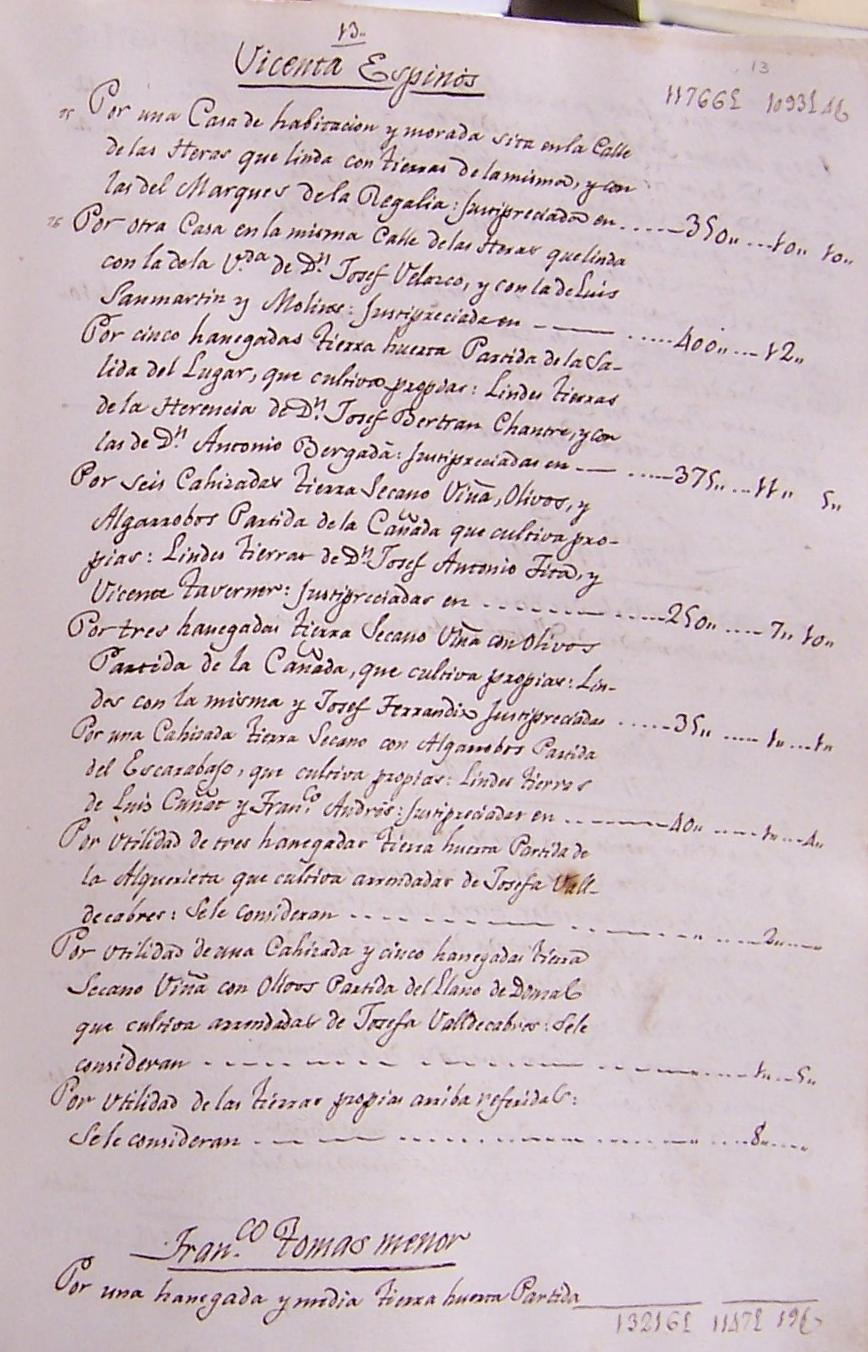 13„
Vicenta Espinós
13
11766£ 1093£ 4§
75 Por una Casa de habitacion y morada sita en la Calle
de las Heras que linda con tierras de la misma, y con
las del Marques de la Regalia: Justipreciada en ......350„ ...10„ 10„
76 Por otra Casa en la misma Calle de las Heras que linda
con la de la V.da de D.n Josef Velazco, y con la de Luis
Sanmartin y Molins: Justipreciada en ——— .....400„ ... 12„
Por cinco hanegadas tierra huerta Partida de la Sa-
lida del Lugar, que cultiva propias: Lindes tierras
de la Herencia de D.n Josef Bertran Chantre, y con
las de D.n Antonio Bergadà: Justipreciadas en —— .....375„ ...11„ 5„
Por seis Cahizadas tierra Secano Viña, Olivos, y
Algarrobos Partida de la Cañada que cultiva pro-
pias: Lindes tierras de D.n Josef Antonio Fita, y
Vicente Taverner: Justipreciadas en .......... 250„ .... 7„ 10„
Por tres hanegadas tierra Secano Viña con Olivos
Partida de la Cañada, que cultiva propias: Lin-
des con la misma y Josef Ferrandis Justipreciadas ......35„ ..... 1„ ... 1„
Por una Cahizada tierra Secano con Algarrobos Partida
del Escarabajo, que cultiva propias: Lindes tierras
de Luis Cañat y Fran.co Andrés: Justipreciadas en ..........40„ .....1„ ...4„
Por Utilidad de tres hanegadas tierra huerta Partida de
la Alquerieta que cultiva arrendadas de Josefa Vall-
decabres: Sele consideran .......... 2„
Por Utilidad de una Cahizada y cinco hanegadas tierra
Secano Viña con Olivos Partida del Llano de
que cultiva arrendadas de Josefa Valldecabres: Sele
consideran .......... 1„ ..5„
Por Utilidad de las tierras propias arriba referidas:
Sele consideran .......... 8„
Fran.co Tomas menor
Por una hanegada y media tierra huerta Partida
13216£ 1147£ 19§